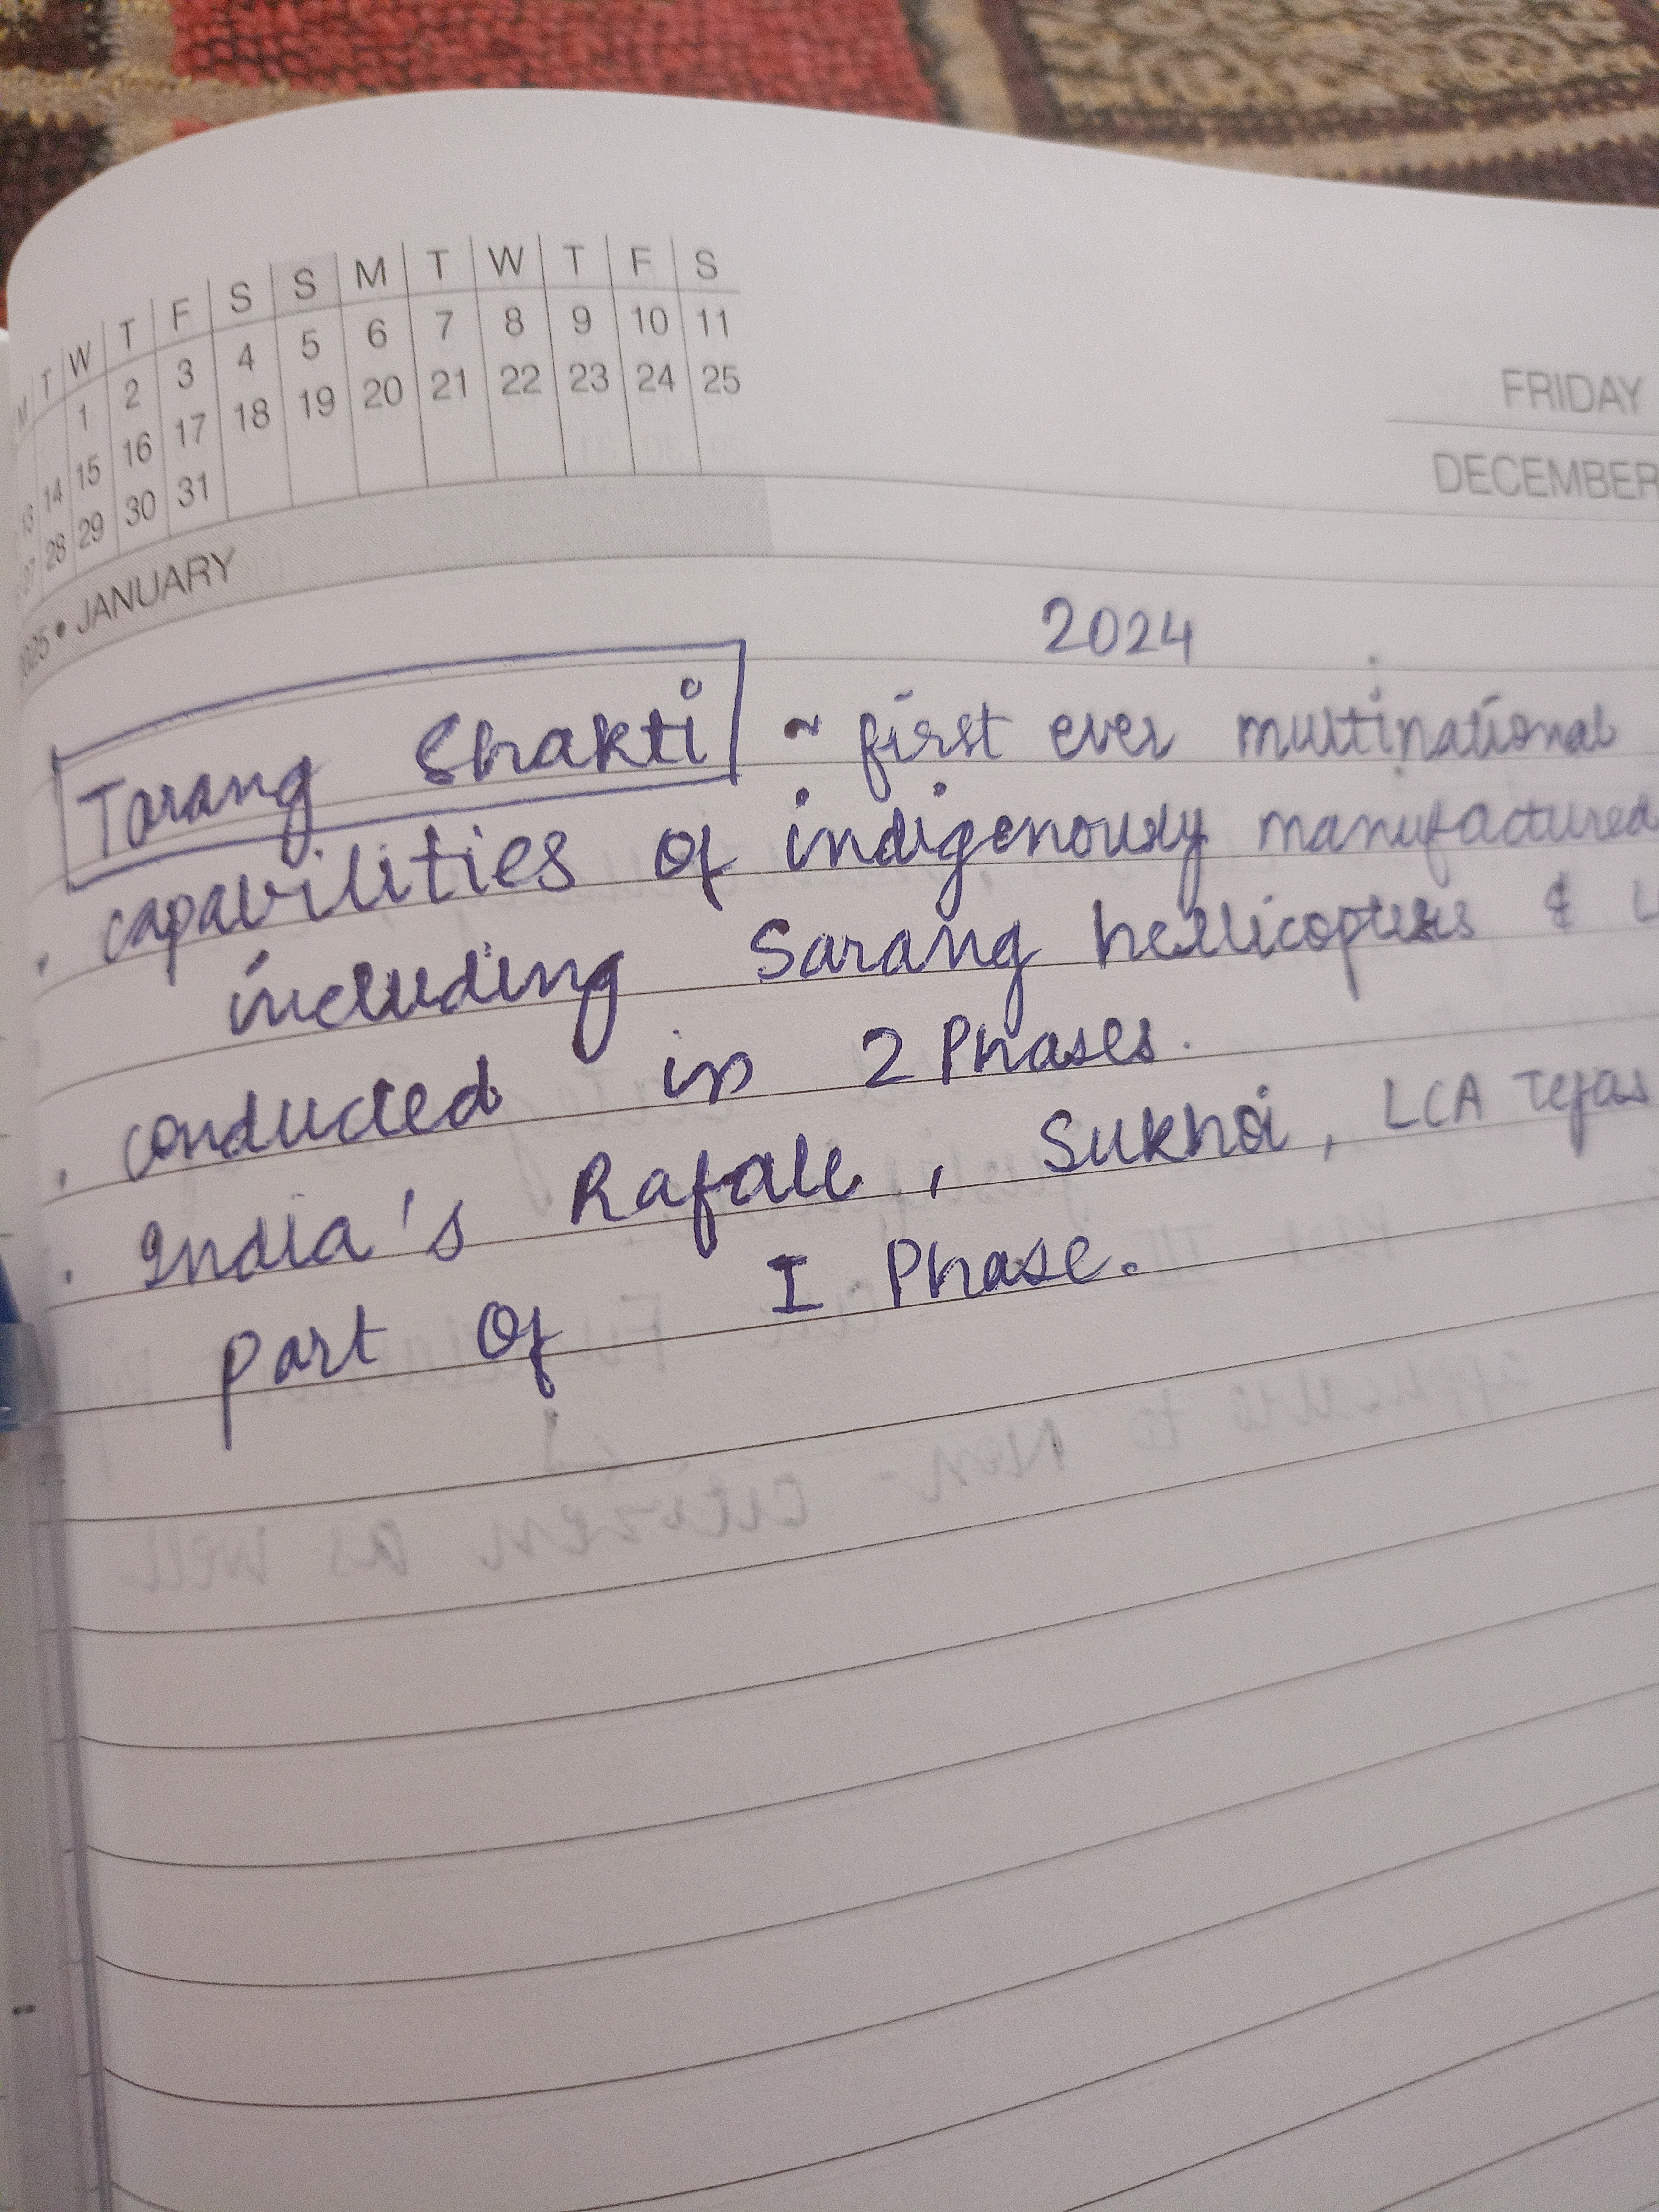 M T W T F S S M T W T F S
1 2 3 4 5 6 7 8 9 10 11
13 14 15 16 17 18 19 20 21 22 23 24 25
27 28 29 30 31
2025 • JANUARY
FRIDAY
DECEMBER
2024
Tarang Shakti ~ first ever multinational
. capabilities of indigenously manufactured
including Sarang hellicopters &
. conducted in 2 Phases.
. India's Rafale, Sukhoi, LCA Tejas
part of I Phase.